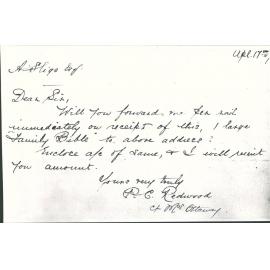 Apl. 17th
A. Sligo Esq
Dear Sir,
Will you forward me per rail
immediately on receipt of this, 1 large
"Family Bible" to above address?
Enclose a/c of same, & I will remit
you amount.
Yours very truly
P. C. Redwood
c/- Mrs